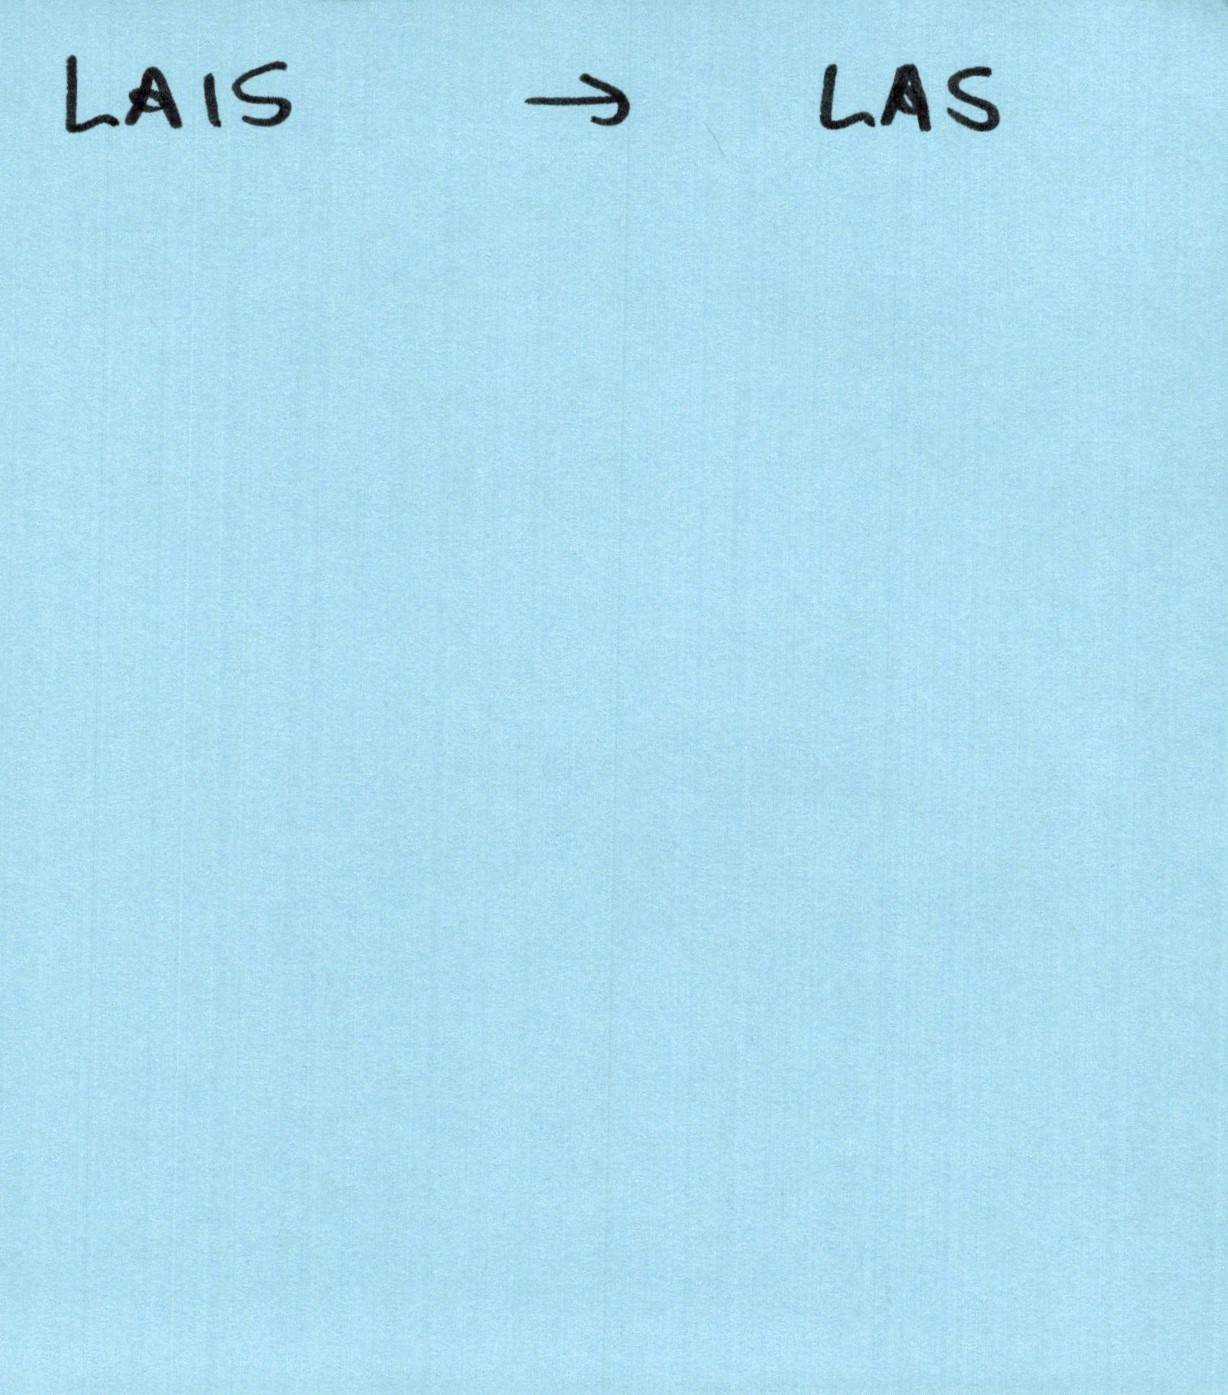 LAIS → LAS